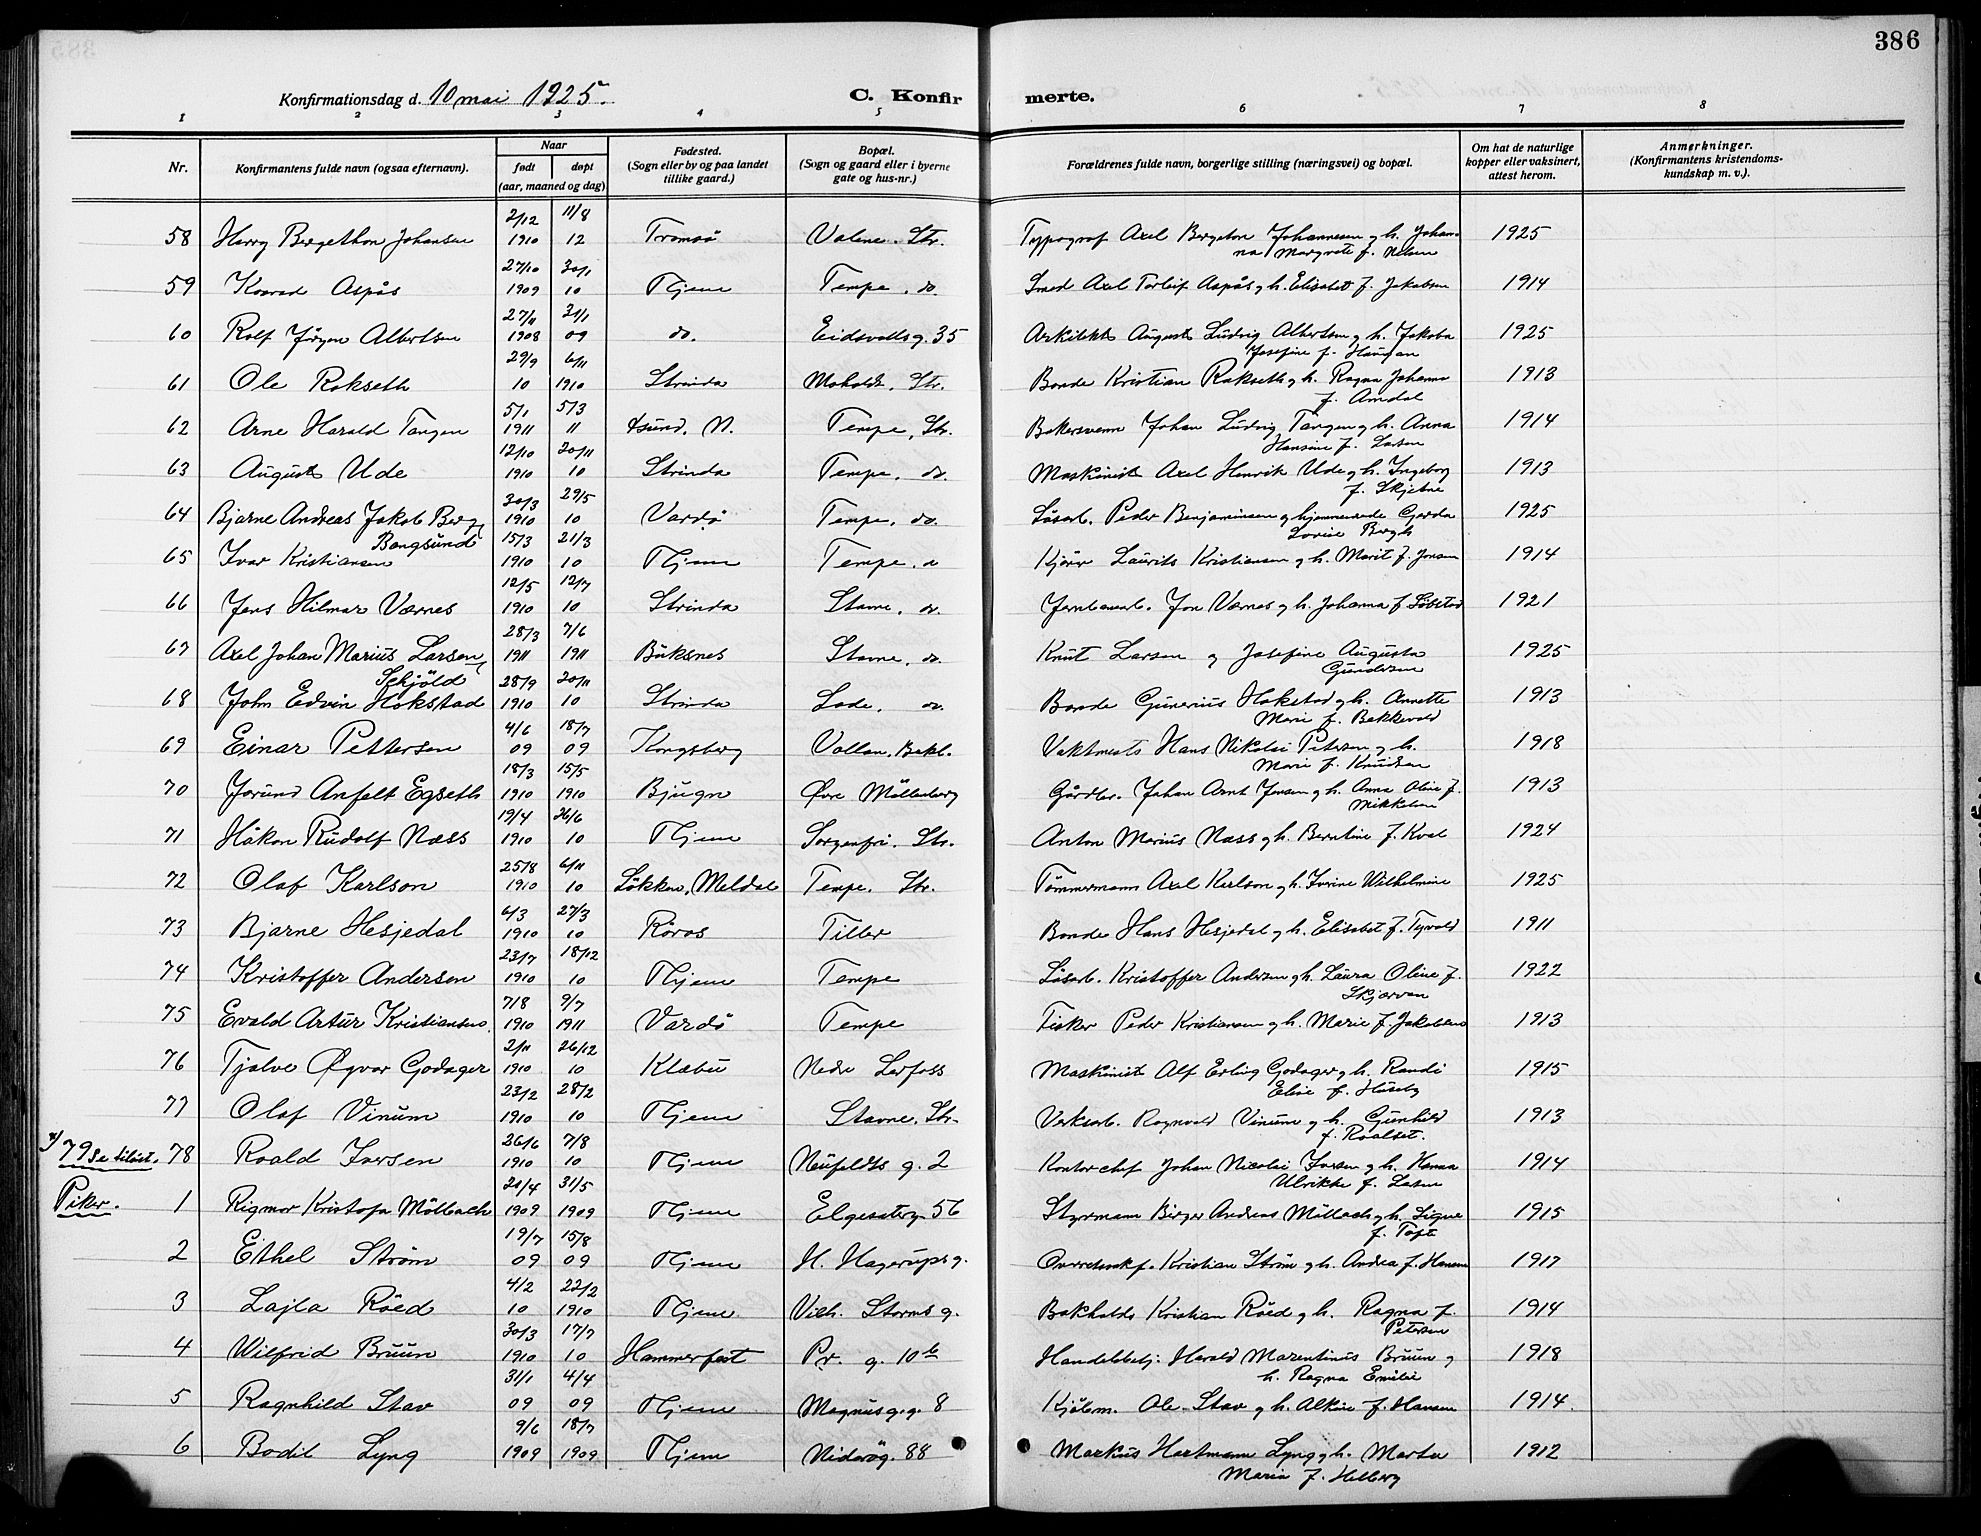 386
Konfirmationsdag d. 10 mai 1925.
C. Konfirmerte.
1 2 3 4 5 6 7 8
Nr. Konfirmantens fulde navn (ogsaa efternavn). Naar født døpt (aar, maaned og dag) Fødested. (Sogn eller by og paa landet tillike gaard.) Bopæl. (Sogn og gaard eller i byerne gate og hus-nr.) Forældrenes fulde navn, borgerlige stilling (næringsvei) og bopæl. Om hat de naturlige kopper eller vaksinert, attest herom. Anmerkninger. (Konfirmantens kristendoms-kundskap m. v.).
58 Harry Bergethon Johansen 2/12 1910 11/8 12 Tromsø Valene. Str. Typograf Axel Bergeton Johannesen g h. Johanna Margrete f. Nilsen 1925
59 Konrad Aspås 27/10 1909 30/1 10 Thjem Tempe. do. Smed Axel Torleif Aspås g h. Elisabet f. Jakobsen 1914
60 Rolf Jörgen Albertsen 27/11 1908 31/1 09 do. Eidsvollsg. 35 Arkitekt August Ludvig Albertsen g h. Jakoba Josefine f. Haugan 1925
61 Ole Rokseth 29/9 10 6/11 1910 Strinda Moholdt. Str. Bonde Kristian Rokseth g h. Ragna Johanna f. Amdal 1913
62 Arne Harald Tangen 5/1 1911 5/3 11 Øsund. N. Tempe, Str. Bakersvenn Johan Ludvig Tangen g h. Anna Hansine f. Larsen 1914
63 August Ude 12/10 1910 20/11 10 Strinda Tempe. do. Maskinist Axel Henrik Ude g h. Ingeborg f. Skjetne 1913
64 Bjarne Andreas Jakob Berg Bangsund 30/3 1910 29/5 10 Vardø Tempe, do. Løsarb. Peder Benjaminsen g hjemmevær. Gerda Lovise Bergh 1925
65 Ivar Kristiansen 15/3 1910 21/3 10 Thjem Tempe. do Kjörer Laurits Kristiansen g h. Marit f. Jonsen 1914
66 Jens Hilmar Værnes 12/5 1910 12/7 10 Strinda Stavne. do. Jernbanearb. Jon Værnes g h. Johanna f. Løbstad 1921
67 Axel Johan Marius Larsen Skjöld 28/3 1911 7/6 1911 Buksnes Stavne, do. Knut Larsen g Josefine Augusta Gundersen 1925
68 John Edvin Hokstad 28/9 1910 20/11 10 Strinda Lade. do. Bonde Gunerius Hokstad g h. Annette Marie f. Bakkevold 1913
69 Einar Pettersen 4/6 09 18/7 09 Kongsberg Vollan. Bakl. Vaktmests Hans Nikolai Petersen g h. Marie f. Knudsen 1918
70 Jorund Anfelt Egseth 18/3 1910 15/5 1910 Bjugn Øvre Möllenberg Gårdbr. Johan Arnt Jensen g h. Anna Oline f. Mikkelsen 1913
71 Håkon Rudolf Næss 19/4 1910 26/6 10 Thjem Sorgenfri. Str. Anton Marius Næss g h. Berntine f. Kval 1924
72 Olaf Karlson 25/8 1910 6/11 10 Løkken, Meldal Tempe. Str. Tømmermann Axel Karlson g h. Iverine Wilhelmine 1925
73 Bjarne Hesjedal 6/3 1910 27/3 10 Røros Tiller Bonde Hans Hesjedal g h. Elisabet f. Tyvold 1911
74 Kristoffer Andersen 23/7 1910 18/12 10 Thjem Tempe Løsarb. Kristoffer Andersen g h. Laura Oline f. Skjarven 1922
75 Evald Artur Kristiansen. 7/8 1910 9/7 1911 Vardø Tempe Fisker Peder Kristiansen g h. Marie f. Jakobsen 1913
76 Tjalve Øgvar Godager 2/11 1910 26/12 10 Klæbu Nedre Lerfoss Maskinist Alf Erling Godager g h. Randi Elise f. Huseby 1915
77 Olaf Vinum 23/2 1910 28/2 10 Thjem Stavne. Str. Verksarb. Ragnvald Vinum g h. Gunhild f. Roalset. 1913
x) 79 Se tilöst. 78 Roald Iversen 26/6 1910 7/8 10 Thjem Neufeldts g. 2 Kontorchef Johan Nicolai Iversen g h. Hanna Ulrikke f. Larsen 1914
Piker. 1 Rigmor Kristofa Möllbach 20/4 1909 31/5 1909 Thjem Elgesæterg. 56 Styrmann Birger Andreas Möllbach g h. Signe f. Toft 1915
2 Ethel Ström 19/7 09 15/8 09 Thjem H. Hagerups g. Overretssakf. Kristian Ström g h. Andrea f. Hansen 1917
3 Lajla Röed 4/2 10 22/2 1910 Thjem Vilh. Storms g. Bokholder Kristian Röed g h. Ragna f. Petersen 1914
4 Wilfrid Bruun 30/3 1910 17/7 10 Hammerfest Pr. g. 10 b Handelsbetj. Harald Marentinus Bruun g h. Ragna Emilie 1918
5 Ragnhild Stav 31/1 09 4/4 09 Thjem Magnus g. g. 8 Kjölem. Ole Stav g h. Alkine f. Hansen 1914.
6 Bodil Lyng 9/6 1909 18/7 1909 Thjem Nidarög. 88 Markus Hartmann Lyng g h. Marta Maria f. Helberg 1912